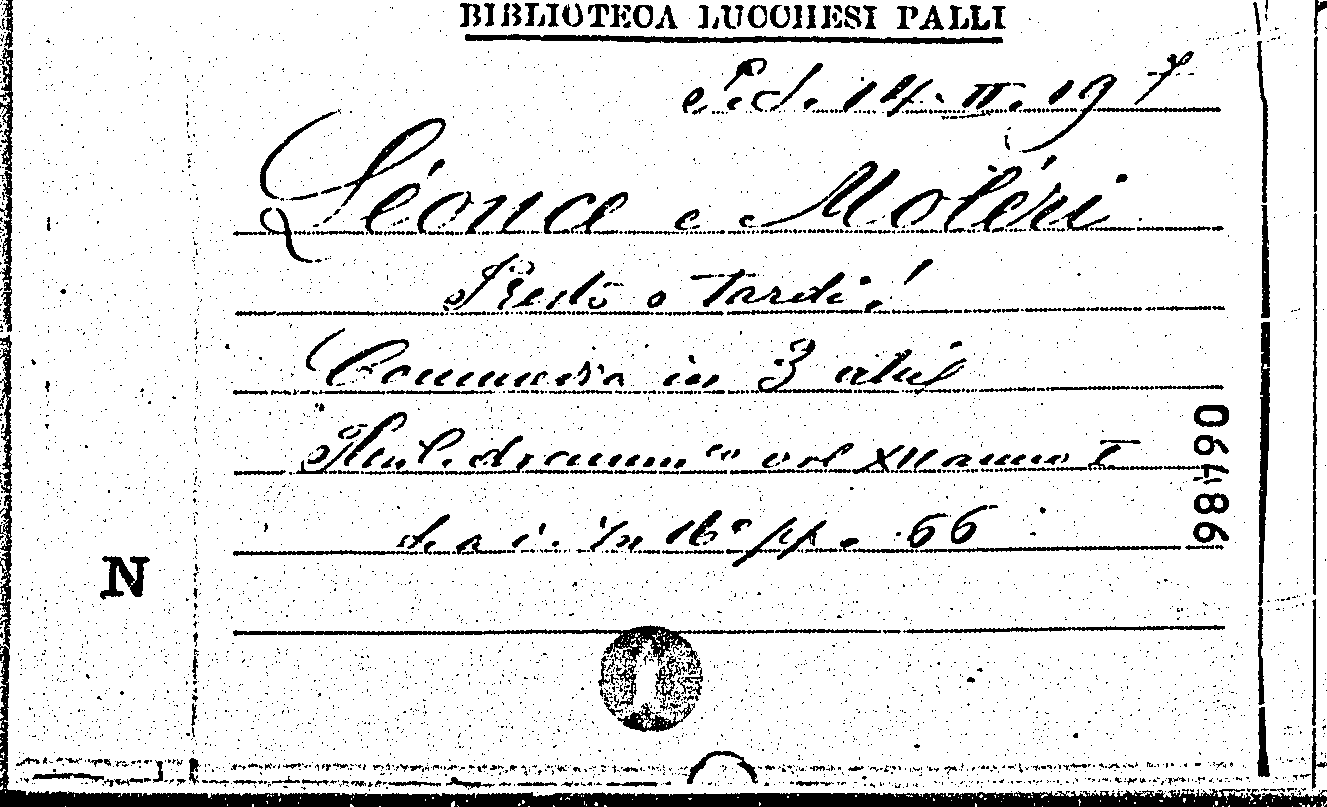 BIBLIOTECA LUCCHESI PALLI
P.d. 14. II. 19 7
Léonce e Moléri
Presto o tardi!
Commedia in 3 atti
dramm.co vol XII anno I
s. a. i. in 16° pp. 66
06486
N